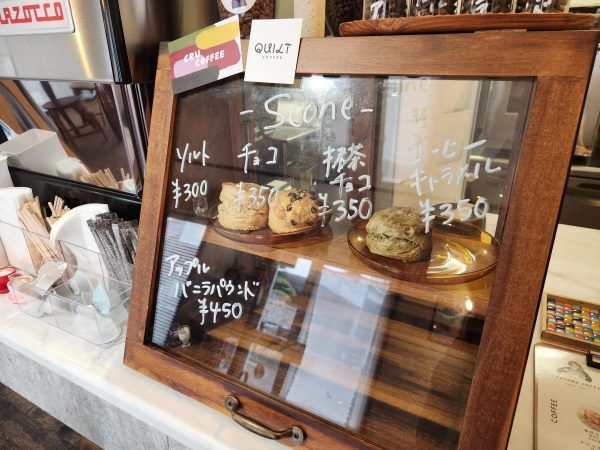 LAZOCCO
CRU
COFFEE
QUILT
COFFEE
- Scone -
ソルト
¥300
チョコ
¥350
抹茶
チョコ
¥350
コーヒー
キャラメル
¥350
アップル
バニラパウンド
¥450
COFFEE